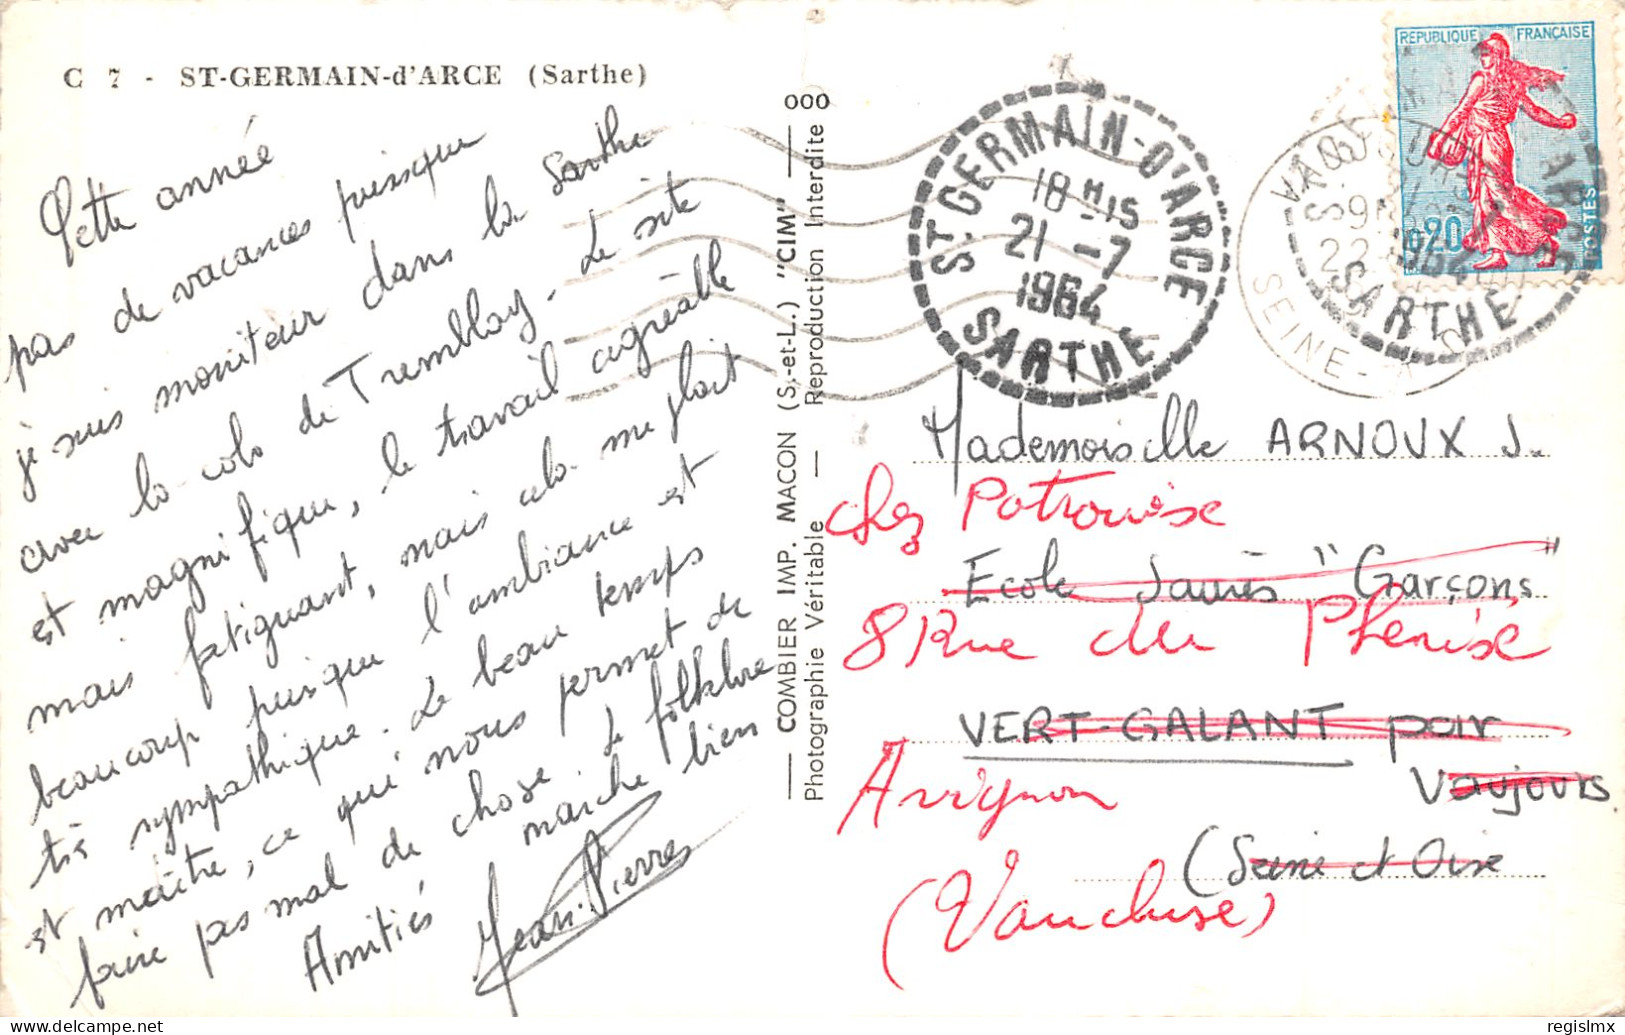 C 7 - ST-GERMAIN-d'ARCE (Sarthe)
Cette année
pas de vacances puisque
je suis moniteur dans la Sarthe
avec la colo de Tremblay. Le site
est magnifique, le travail agréable
mais fatigant, mais cela me plait
beaucoup puisque l'ambiance est
très sympathique. Le beau temps
est maître, ce qui nous permet de
faire pas mal de chose. Le folklore
marche bien
Amitiés
Jean-Pierre
COMBIER IMP. MACON (S.-et-L.) "CIM"
Photographie Véritable — Reproduction Interdite
000
ST-GERMAIN-D'ARCE
18 H 15
21 -7
1964
SARTHE
REPUBLIQUE FRANÇAISE
0,20
POSTES
VAUJOURS
22
1964
SEINE-
SARTHE
Mademoiselle ARNOUX J.
chez Patrouise
Ecole Jaurès "Garçons"
8 Rue du Phenise
VERT-GALANT par
Avignon
Vaujours
(Seine et Oise
(Vaucluse)
regislmx
delcampe.net